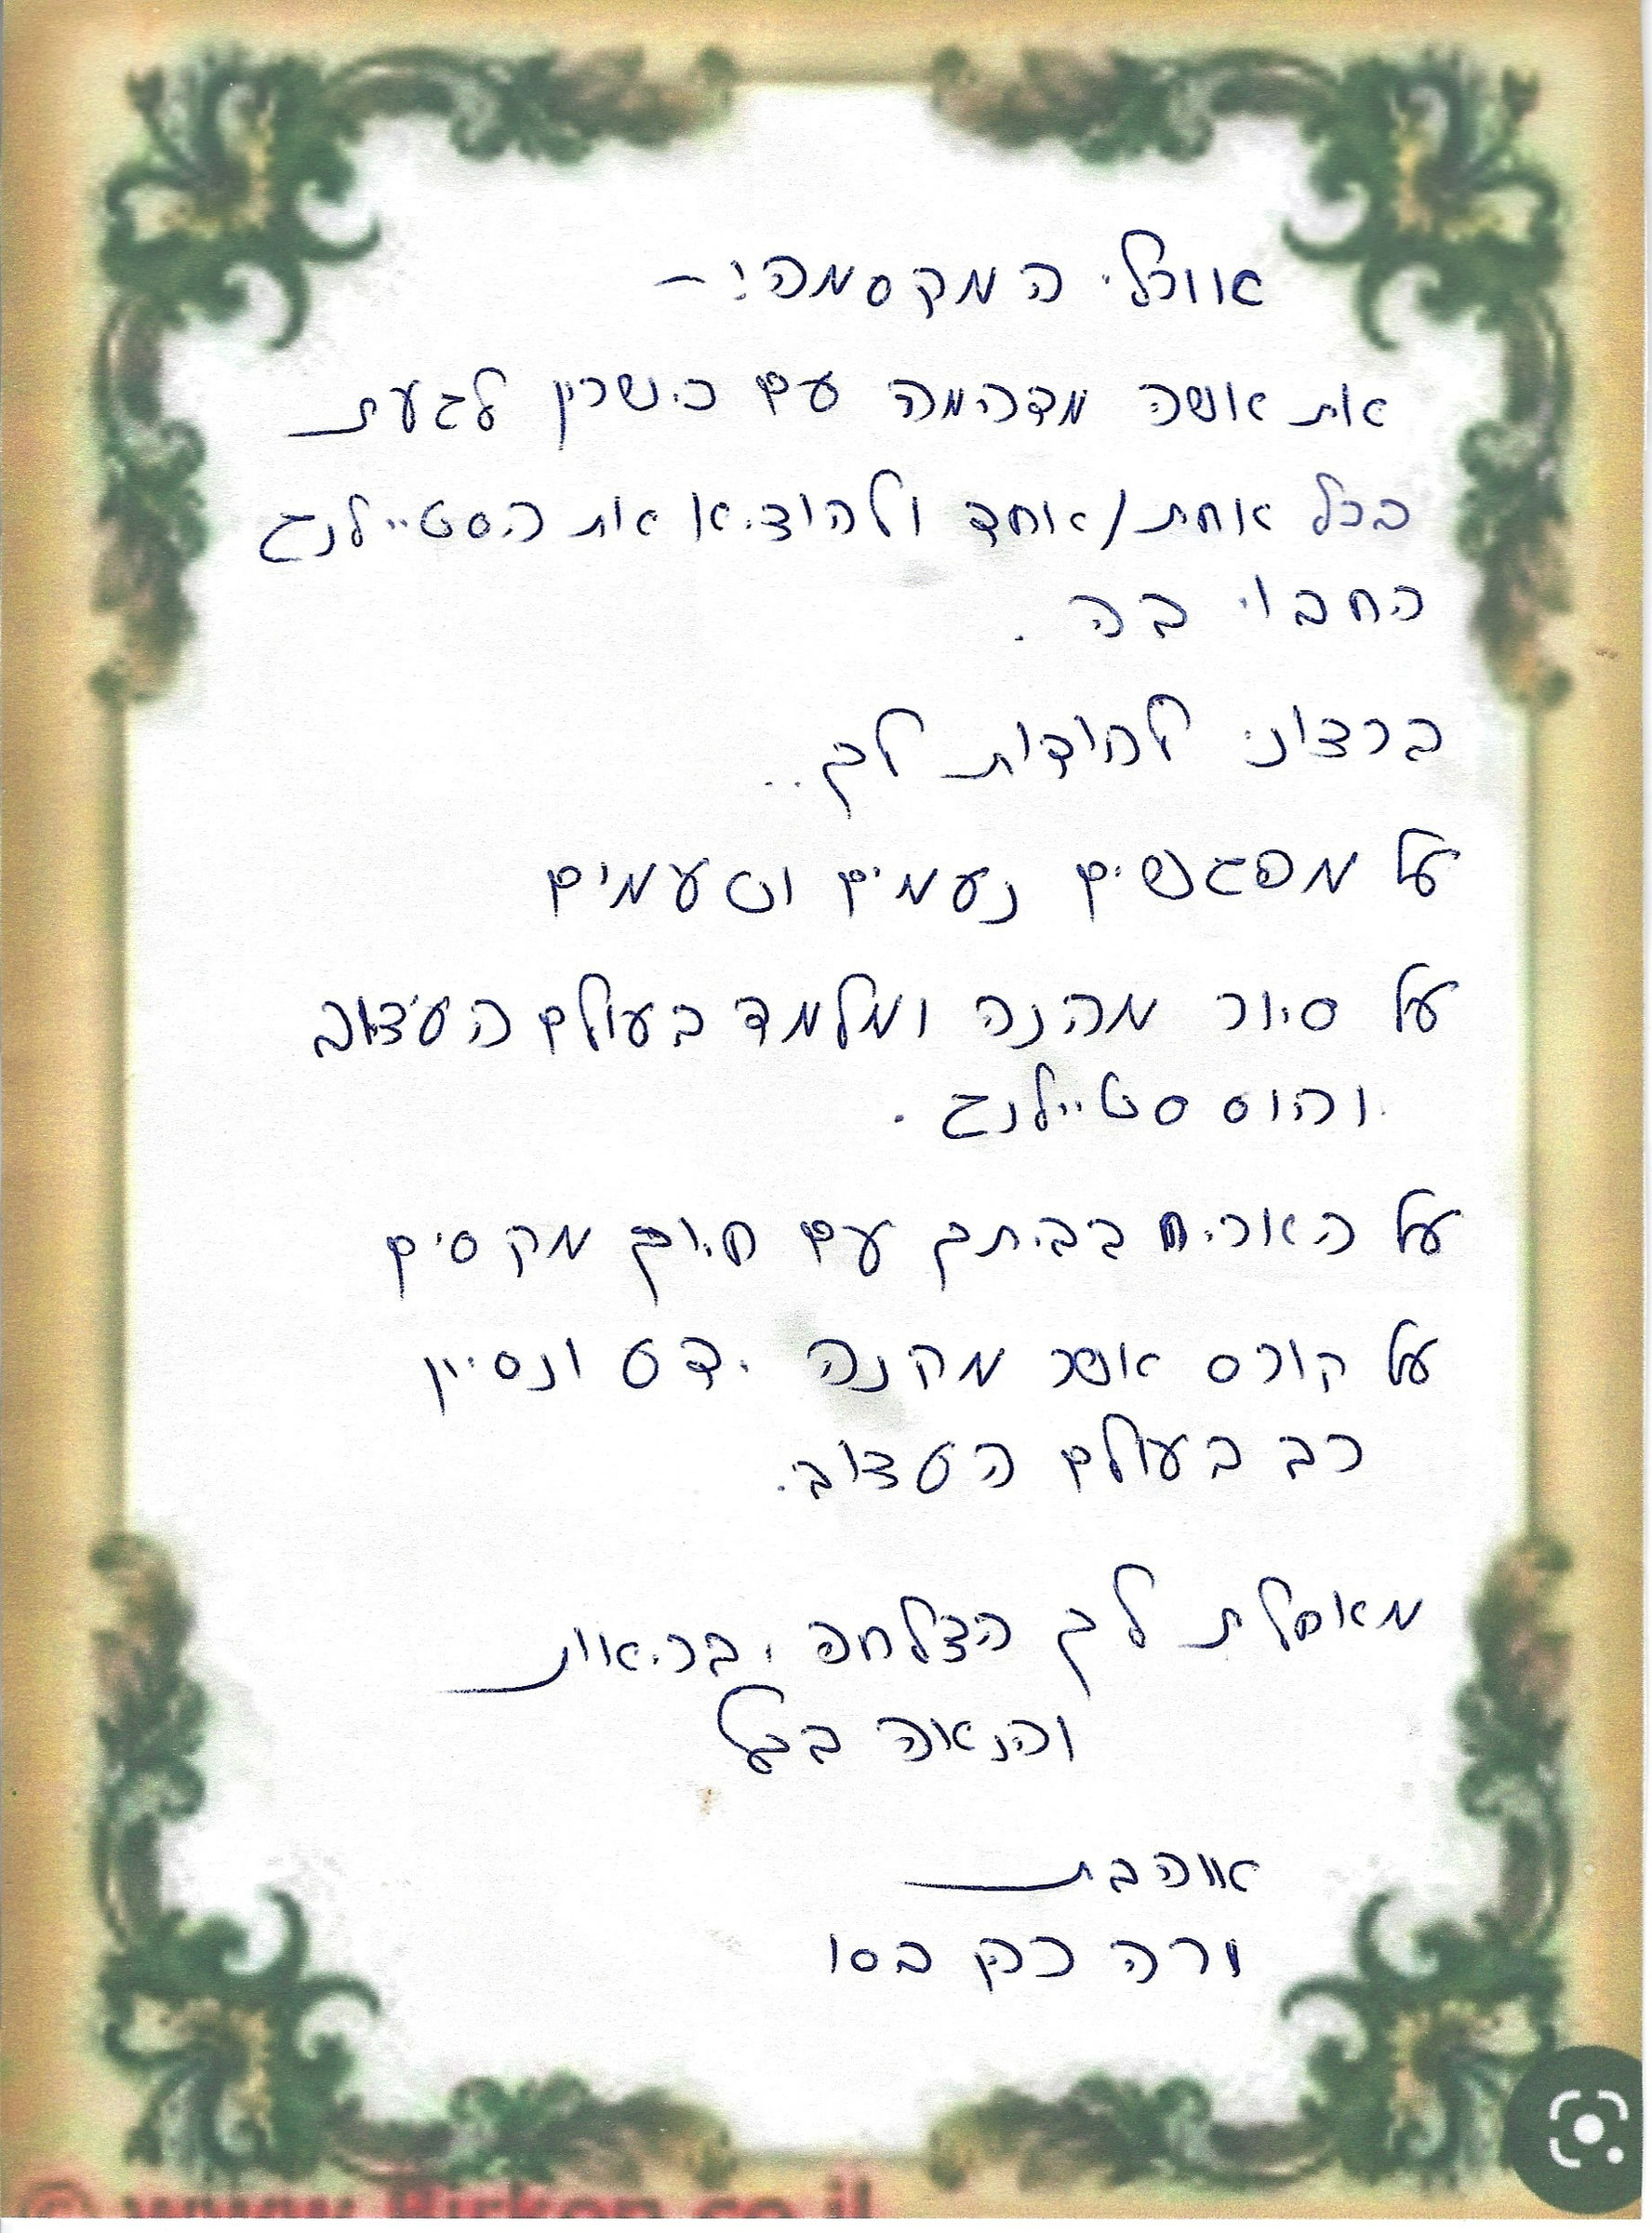 אורלי המקסמה! –
את אשה מדהמה עם כשרון לגעת
בכל אחת/אחד ולהוציא את הסטיילנג
החבוי בה.
ברצוני להודות לך..
על מפגשים נעמים וטעמים
על סיור מהנה ומלמד בעולם העצוב
והום סטיילנג.
על האריח בביתך עם חיוך מקסים
על קורס אשר מקנה ידע ונסיון
רב בעולם העצוב.
מאחלת לך הצלחה, בריאות
והנאה בכל
אוהבת
ורה בסו
© www.Birkon.co.il